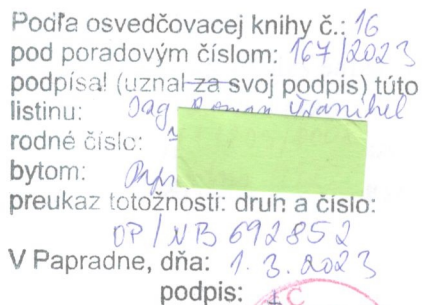 Podľa osvedčovacej knihy č.: 16
pod poradovým číslom: 167/2023
podpísal (uznal za svoj podpis) túto
listinu: Roman
rodné číslo:
bytom:
preukaz totožnosti: druh a číslo:
OP/NB 692852
V Papradne, dňa: 1. 3. 2023
podpis: